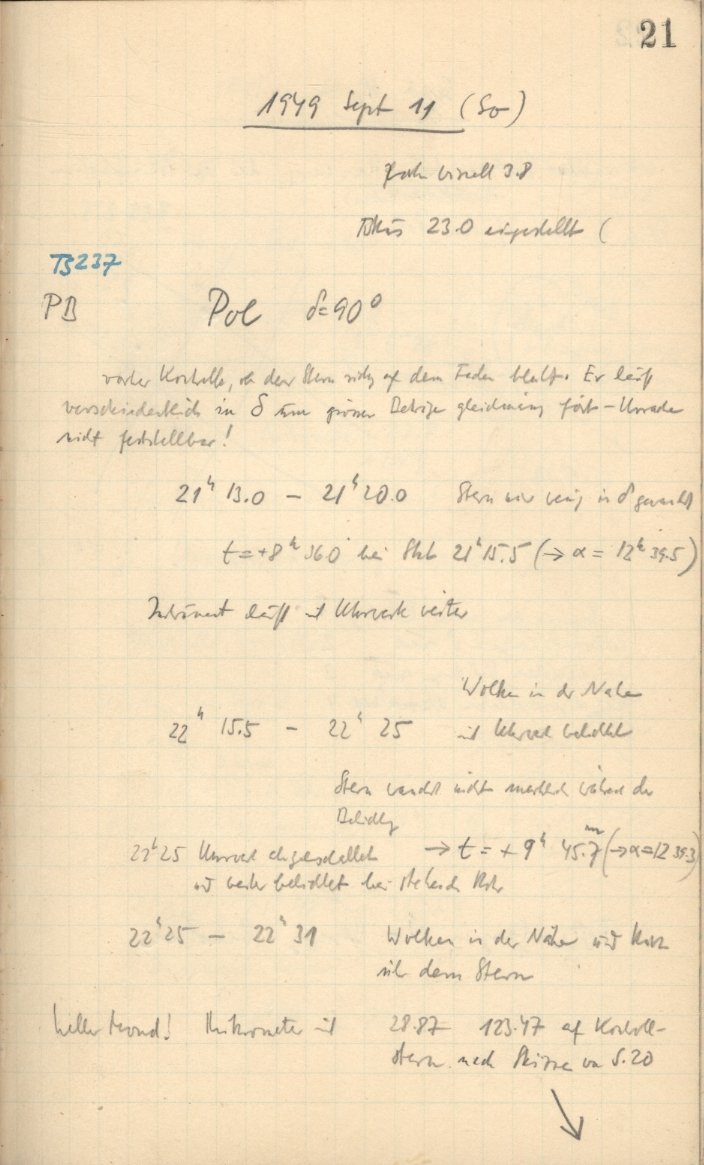 21
1949 Sept 11 (So)
visuell 3.8
Fokus 23.0 eingestellt (
TB237
PB Pol δ=90°
vorher Kontrolle, ob der Stern sich auf dem Faden bleibt. Er läuft
in δ um gleichmässig fort – Ursache
nicht feststellbar!
21ʰ 13.0 – 21ʰ 20.0 Stern nur wenig in δ gewandert
t = +8ʰ 36.0 bei 21ʰ 15.5 (→ α = 12ʰ 39.5)
Instrument läuft mit Uhrwerk weiter
Wolken in der Nähe
22ʰ 15.5 – 22ʰ 25 mit Uhrwerk belichtet
Stern wandert nicht merklich während der
Belichtg
22ʰ25 Uhrwerk abgeschaltet → t = + 9ʰ 45.7ᵐ (→ α = 12 39.3)
und weiter belichtet bei stehendem Rohr
22ʰ25 – 22ʰ 31 Wolken in der Nähe und kurz
über dem Stern
heller Mond! Mikrometer mit 28.87 123.47 auf Kontroll-
stern nach Skizze von S.20